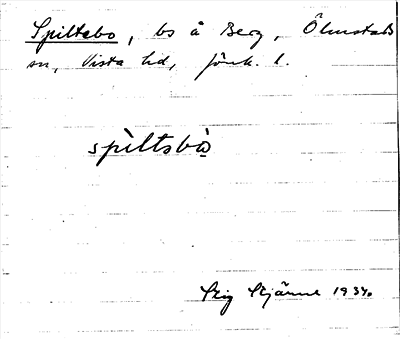 Spiltabo, bs å Berg, Ölmstads
sn, Vista hd, Jönk. l.
spìltsbò̤
Stig Stjärne 1934.